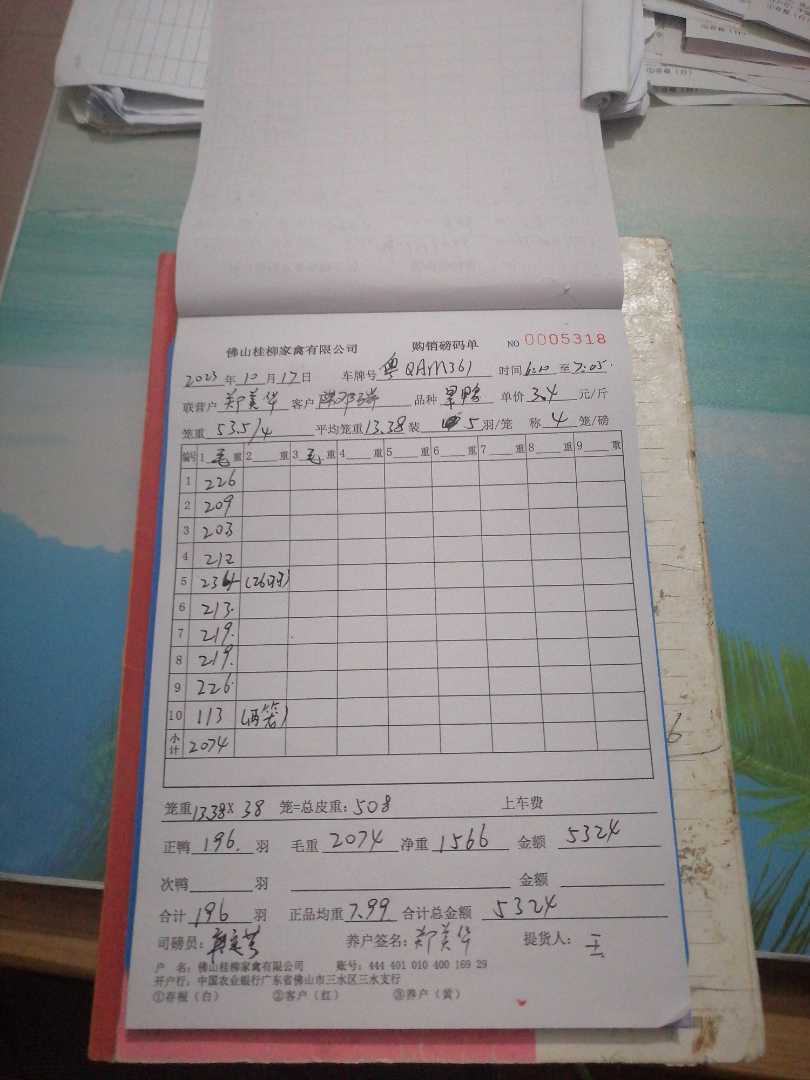 佛山桂柳家禽有限公司 购销磅码单 NO 0005318
2023年10月17日 车牌号 粤QAM361 时间6:10至7:05
联营户 郑美华 客户 品种 单价 3.4 元/斤
笼重 53.5/4 平均笼重 13.38 装 5 羽/笼 称 4 笼/磅
编号 1 毛 重 2 重 3 毛 重 4 重 5 重 6 重 7 重 8 重 9 重
1 226
2 209
3 203
4 212
5 234 (26羽)
6 213.
7 219.
8 219.
9 226.
10 113 (两笼)
小计 2074
笼重13.38X 38 笼=总皮重:508 上车费
正鸭 196. 羽 毛重 2074 净重 1566 金额 5324
次鸭 羽 金额
合计 196 羽 正品均重 7.99 合计总金额 5324
司磅员: 养户签名:郑美华 提货人: 王
户 名:佛山桂柳家禽有限公司 账号:444 401 010 400 169 29
开户行:中国农业银行广东省佛山市三水区三水支行
①存根(白) ②客户(红) ③养户(黄)